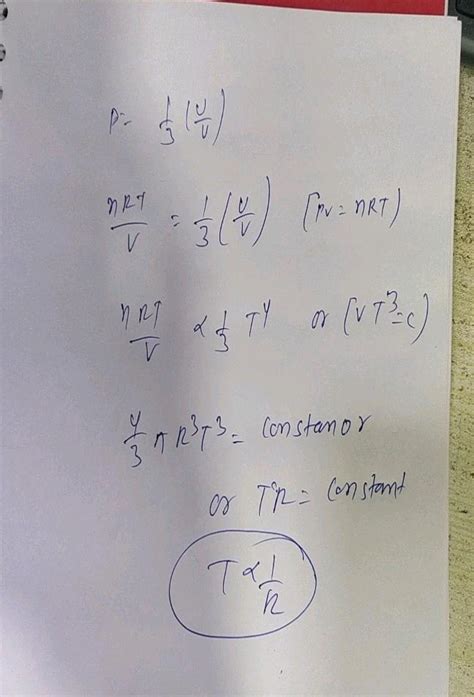 P = 1/3 (U/V)
nRT/V = 1/3 (U/V) [PV = nRT)
nRT/V ∝ 1/3 T⁴ or [VT³ = C)
4/3 π R³T³ = constanor
or TR = constant
T ∝ 1/R